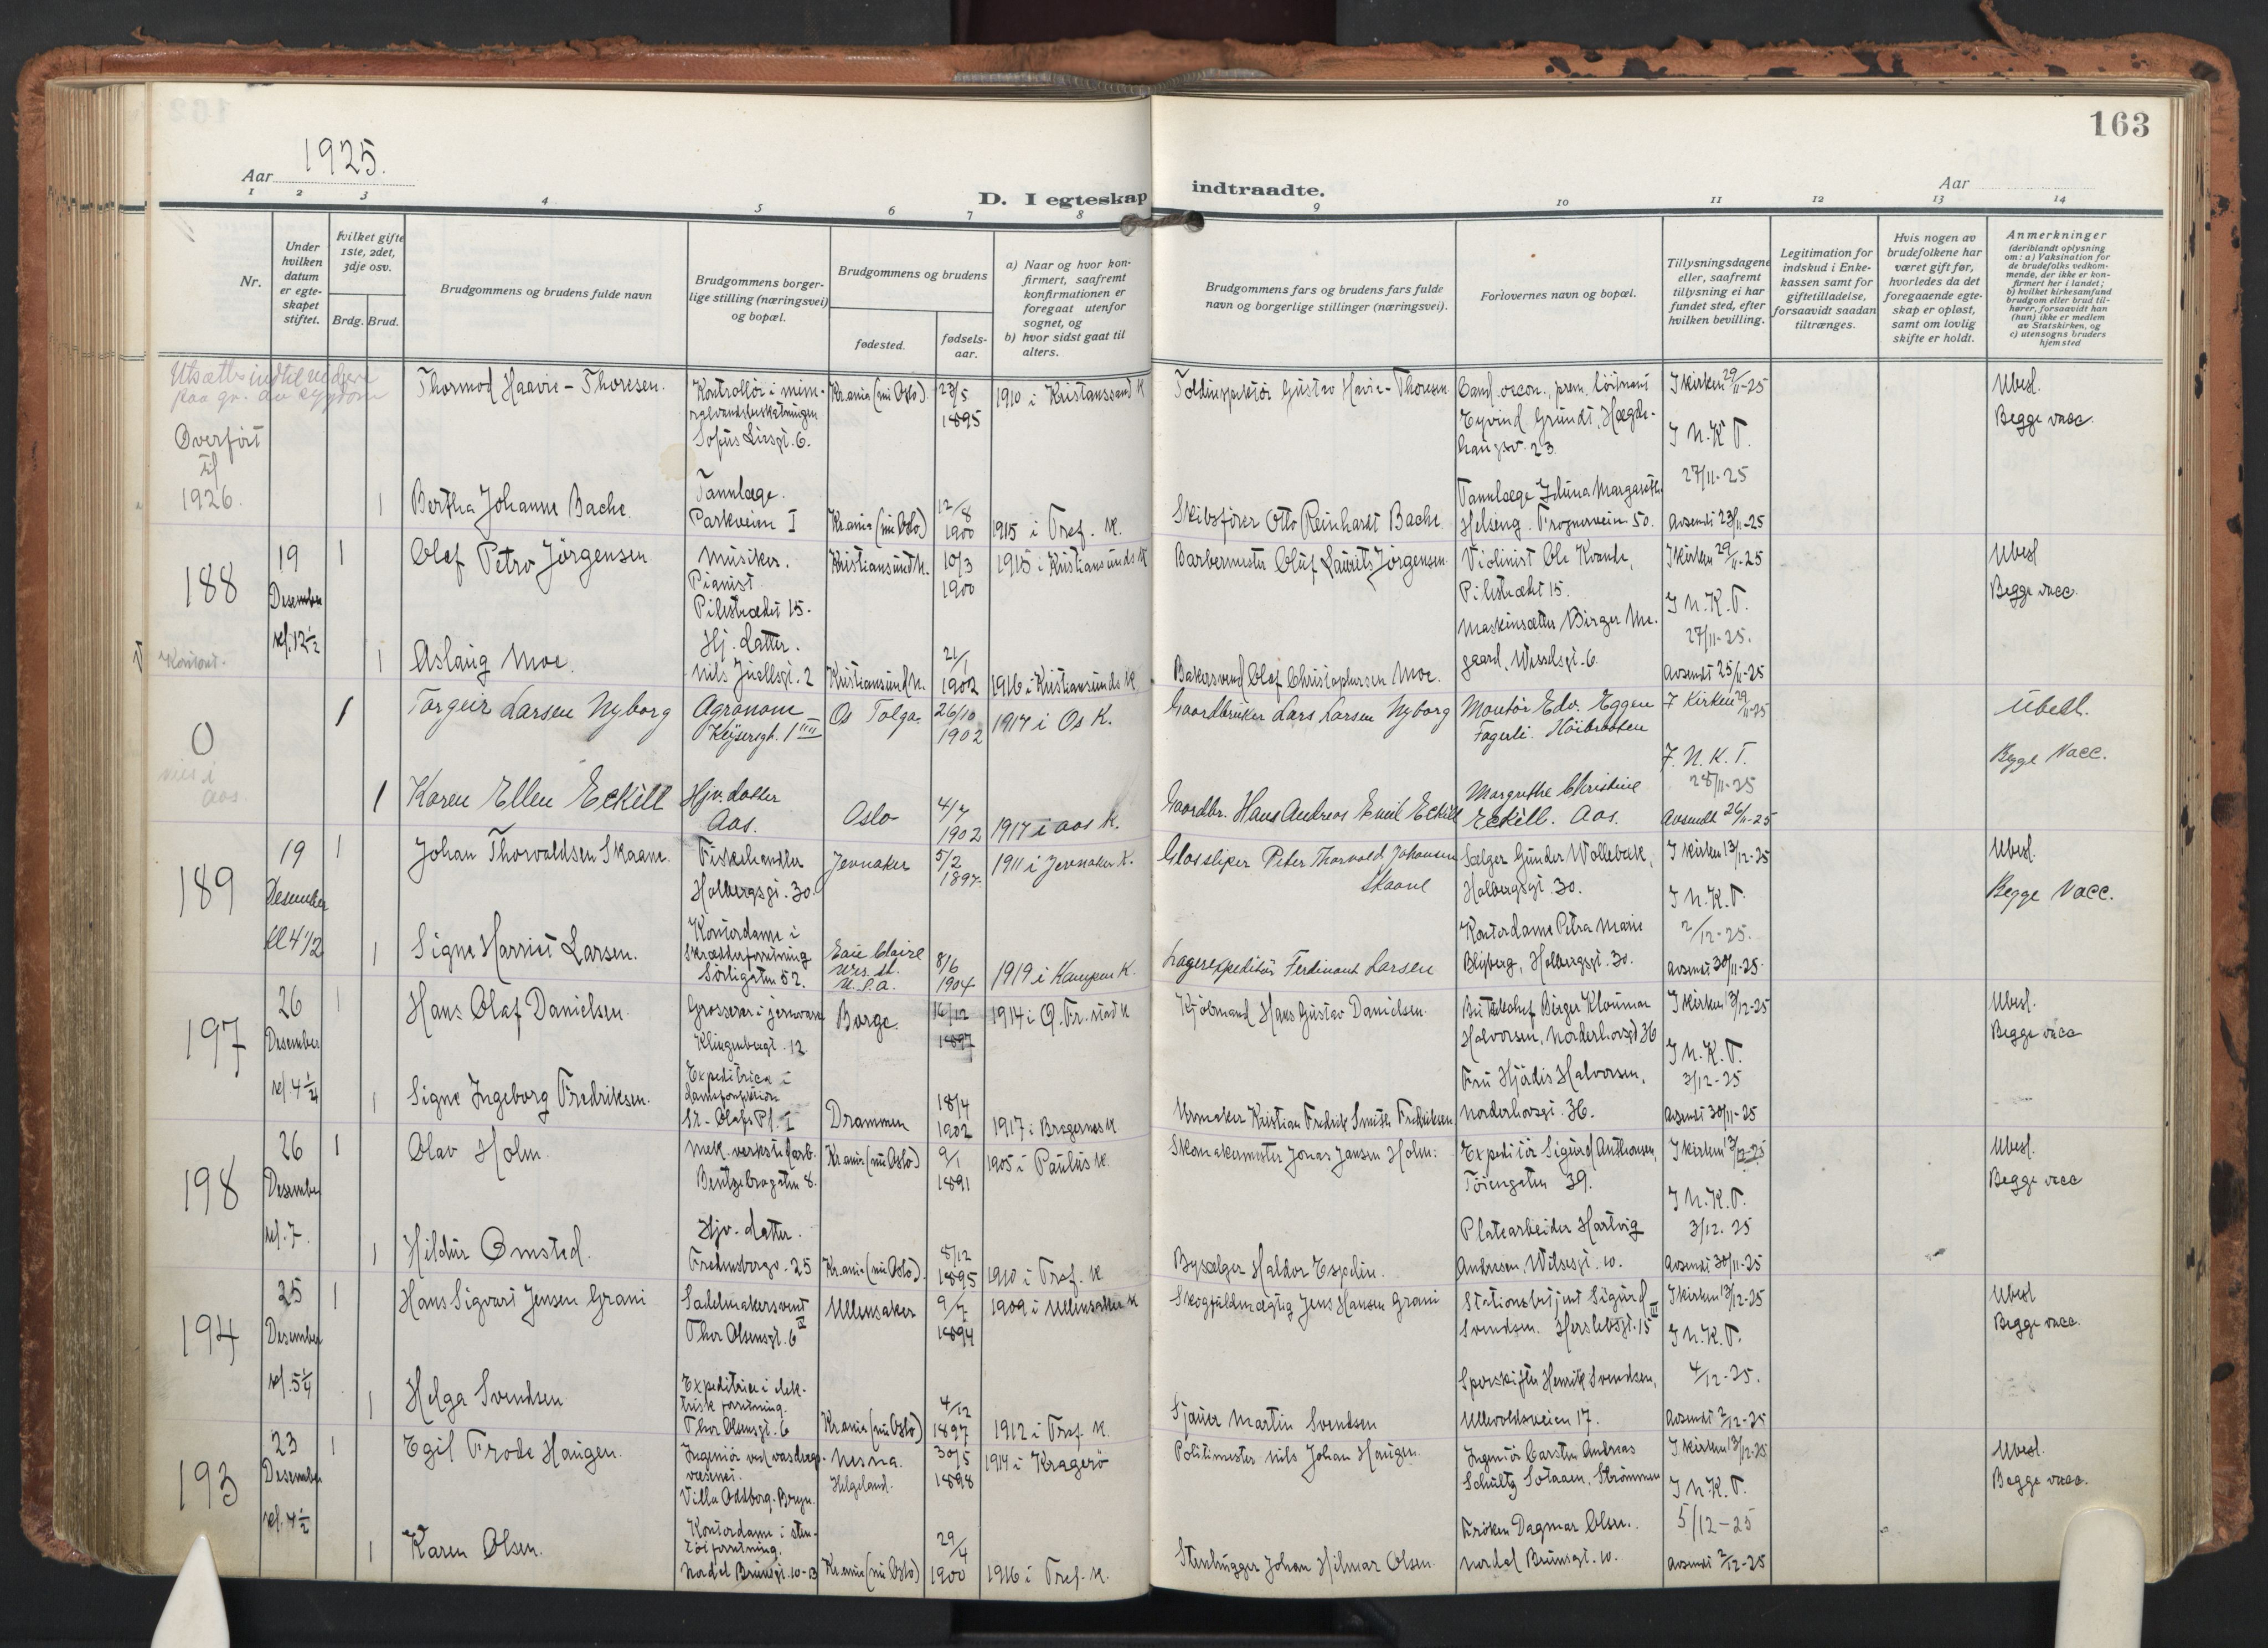 163
Aar 1925.
D. I egteskap indtraadte.
Aar
1 2 3 4 5 6 7 8 9 10 11 12 13 14
Nr.
Under hvilken datum er egte-skapet stiftet.
Hvilket gifte 1ste, 2det, 3dje osv.
Brdg. Brud.
Brudgommens og brudens fulde navn
Brudgommens borger-lige stilling (næringsvei) og bopæl.
Brudgommens og brudens
fødested.
fødsels-aar.
a) Naar og hvor kon-firmert, saafremt konfirmationen er foregaat utenfor sognet, og
b) hvor sidst gaat til alters.
Brudgommens fars og brudens fars fulde navn og borgerlige stillinger (næringsvei).
Forlovernes navn og bopæl.
Tillysningsdagene eller, saafremt tillysning ei har fundet sted, efter hvilken bevilling.
Legitimation for indskud i Enke-kassen samt for giftetilladelse, forsaavidt saadan tiltrænges.
Hvis nogen av brudefolkene har været gift før, hvorledes da det foregaaende egte-skap er opløst, samt om lovlig skifte er holdt.
Anmerkninger
(deriblandt oplysning om: a) Vaksination for de brudefolks vedkom-mende, der ikke er kon-firmert her i landet; b) hvilket kirkesamfund brudgom eller brud til-hører, forsaavidt han (hun) ikke er medlem av Statskirken, og c) utensogns bruders hjemsted
Utsættes indtil videre
paa gr. av sygdom
Overført
til
1926.
Thormod Haavie-Thoresen.
Kontrollør i mine-
ralvandsbeskatningen
Sofus Liesgt. 6.
Kr.ania (nu Oslo)
23/5
1895
1910 i Kristianssand K
Toldinspektør Gustav Havie-Thoresen
Cand. oecon., prem. løitnant
Eyvind Grundt, Hægde-
haugsv. 23.
I kirken 29/11-25
I N.K.T.
27/11-25
Ubesl.
Begge vacc.
1
Bertha Johanne Bache.
Tannlæge.
Parkveien I
Kr.ania (nu Oslo)
12/8
1900
1915 i Tref. K.
Skibsfører Otto Reinhardt Bache.
Tannlæge Iduna Margarethe
Helseng. Frognerveien 50.
Avsendt 23/11-25
188
19
Desember
kl. 12 1/2
Kontant.
1
Olaf Petro Jørgensen
Musiker.
Pianist
Pilestrædet 15.
Kristiansund N.
10/3
1900
1915 i Kristiansunds K
Barbermester Oluf Laurits Jørgensen
Violinist Ole Kvande,
Pilestrædet 15.
I kirken 29/11-25
I N.K.T.
27/11-25.
Ubesl
Begge vacc.
1
Aslaug Moe.
Hj. datter.
Nils Juelsgt. 2
Kristiansund N.
21/1
1902
1916 i Kristiansunds K
Bakersvend Olaf Christophersen Moe.
Maskinsætter Birger Me-
gaard, Wesselsgt. 6.
Avsendt 25/11-25
0
vies i
Aas.
1
Torgeir Larsen Nyborg
Agronom
Keysersgt. 1 III
Os Tolga.
26/10
1902
1917 i Os K.
Gaardbruker Lars Larsen Nyborg
Montør Edv. Eggen
Fagerli. Høibraaten
I Kirken 29/11-25
I. N. K. T.
28/11-25
Ubesl.
Begge Vacc.
1
Karen Ellen Eckell
Hjv. datter
Aas.
Oslo
4/7
1902
1917 i Aas K.
Gaardbr. Hans Andreas Emil Eckell
Margrethe Christine
Eckell. Aas.
Avsendt 26/11-25
189
19
Desember
kl 4 1/2
1
Johan Thorvaldsen Skaane.
Fiskehandler
Holbergsgt. 30.
Jevnaker
5/2
1897.
1911 i Jevnaker K.
Glassliper Peter Thorvald Johansen
Skaane
Sælger Gunder Wollebæk,
Holbergsgt. 30.
I kirken 13/12-25
I N.K.T.
2/12-25.
Ubesl.
Begge Vacc.
1
Signe Harriet Larsen.
Kontordame i
Skrædderforretning
Sörligaten 52.
Eau Claire
Wis. st.
U.S.A.
8/6
1904
1919 i Kampen K.
Lagerexpeditør Ferdinant Larsen
Kontordame Petra Marie
Blyberg, Holbergsgt. 30.
Avsendt 30/11-25.
197
26
Desember
kl. 4 1/4
1
Hans Olaf Danielsen.
Grosserer i jernvarer
Klingenbergt. 12.
Borge.
16/12
1897
1914 i Ø. Fr.stad K
Kjøbmand Hans Gustav Danielsen.
Butikschef Birger Klouman
Halvorsen, Norderhovsgt 36
I kirken 13/12-25
I N.K.T.
3/12-25
Ubesl.
Begge vacc
1
Signe Ingeborg Fredriksen.
Expeditrice i
Damekonfektion
St. Olafs Pl. I
Drammen
18/4
1902
1917 i Bragernes K
Urmaker Kristian Fredrik Smith Fredriksen
Fru Hjördis Halvorsen,
Norderhovsgt. 36.
Avsendt 30/11-25
198
26
Desember
kl. 7.
1
Olav Holm.
Mek. verksted arb.
Bentzebrogaten 8.
Kr.ania (nu Oslo)
9/1
1891
1905 i Paulus K.
Skomakermester Jonas Jansen Holm.
Expeditör Sigurd Anthonsen,
Töiengaten 39.
I kirken 13/12-25
I N.K.T.
3/12. 25
Ubesl.
Begge vacc
1
Hildur Omsted.
Hjv. datter.
Fredensborgv. 25
Kr.ania (nu Oslo).
8/12
1895
1910 i Tref. K
Bysælger Haldor Espelin.
Platearbeider Hartvig
Andresen, Wilsesgt. 10.
Avsendt 30/11-25
194
25
Desember
kl. 5 1/4
1
Hans Sigvart Jensen Grani
Sadelmakersvend
Thor Olsensgt. 6 IV
Ullensaker
9/7
1894
1909 i Ullensaker K
Skogfuldmægtig Jens Hansen Grani
Stationsbetjent Sigurd
Svendsen. Herslebsgt. 15 III
I kirken 13/12-25
I N.K.T.
4/12-25.
Ubesl
Begge vacc.
1
Helga Svendsen
Expeditrice i elek-
trisk forretning.
Thor Olsensgt. 6
Kr.ania (nu Oslo)
4/12
1897
1912 i Tref. K.
Sjauer Martin Svendsen
Sporskifter Henrik Svendsen,
Ullevoldsveien 17.
Avsendt 2/12-25
193
23
Desember
kl. 4 1/2
1
Egil Frode Haugen.
Ingeniør ved vasdrags-
væsenet.
Villa Oddborg. Bryn.
Nesna.
Helgeland.
30/5
1898
1914 i Kragerö
Politimester Nils Johan Haugen.
Ingeniör Carsten Andreas
Schultz Sotaaen, Strömmen
I kirken 13/12-25
I N.K.T.
5/12-25
Ubesl.
Begge vacc.
1
Karen Olsen.
Kontordame i sten-
töiforretning.
Nordal Brunsgt. 10-13
Kr.ania (nu Oslo)
29/4
1900
1916 i Tref. K.
Stenhugger Johan Hilmar Olsen.
Fröken Dagmar Olsen.
Nordal Brunsgt. 10.
Avsendt 2/12-25